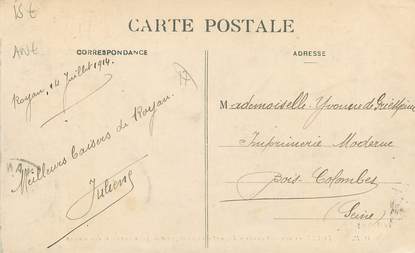 15€
CARTE POSTALE
CORRESPONDANCE
ADRESSE
Royan, 14 Juillet 1914.
Meilleurs baisers de Royan.
Juliene
Mademoiselle Yvonne de
Imprimerie Moderne
Bois-Colombes
(Seine)